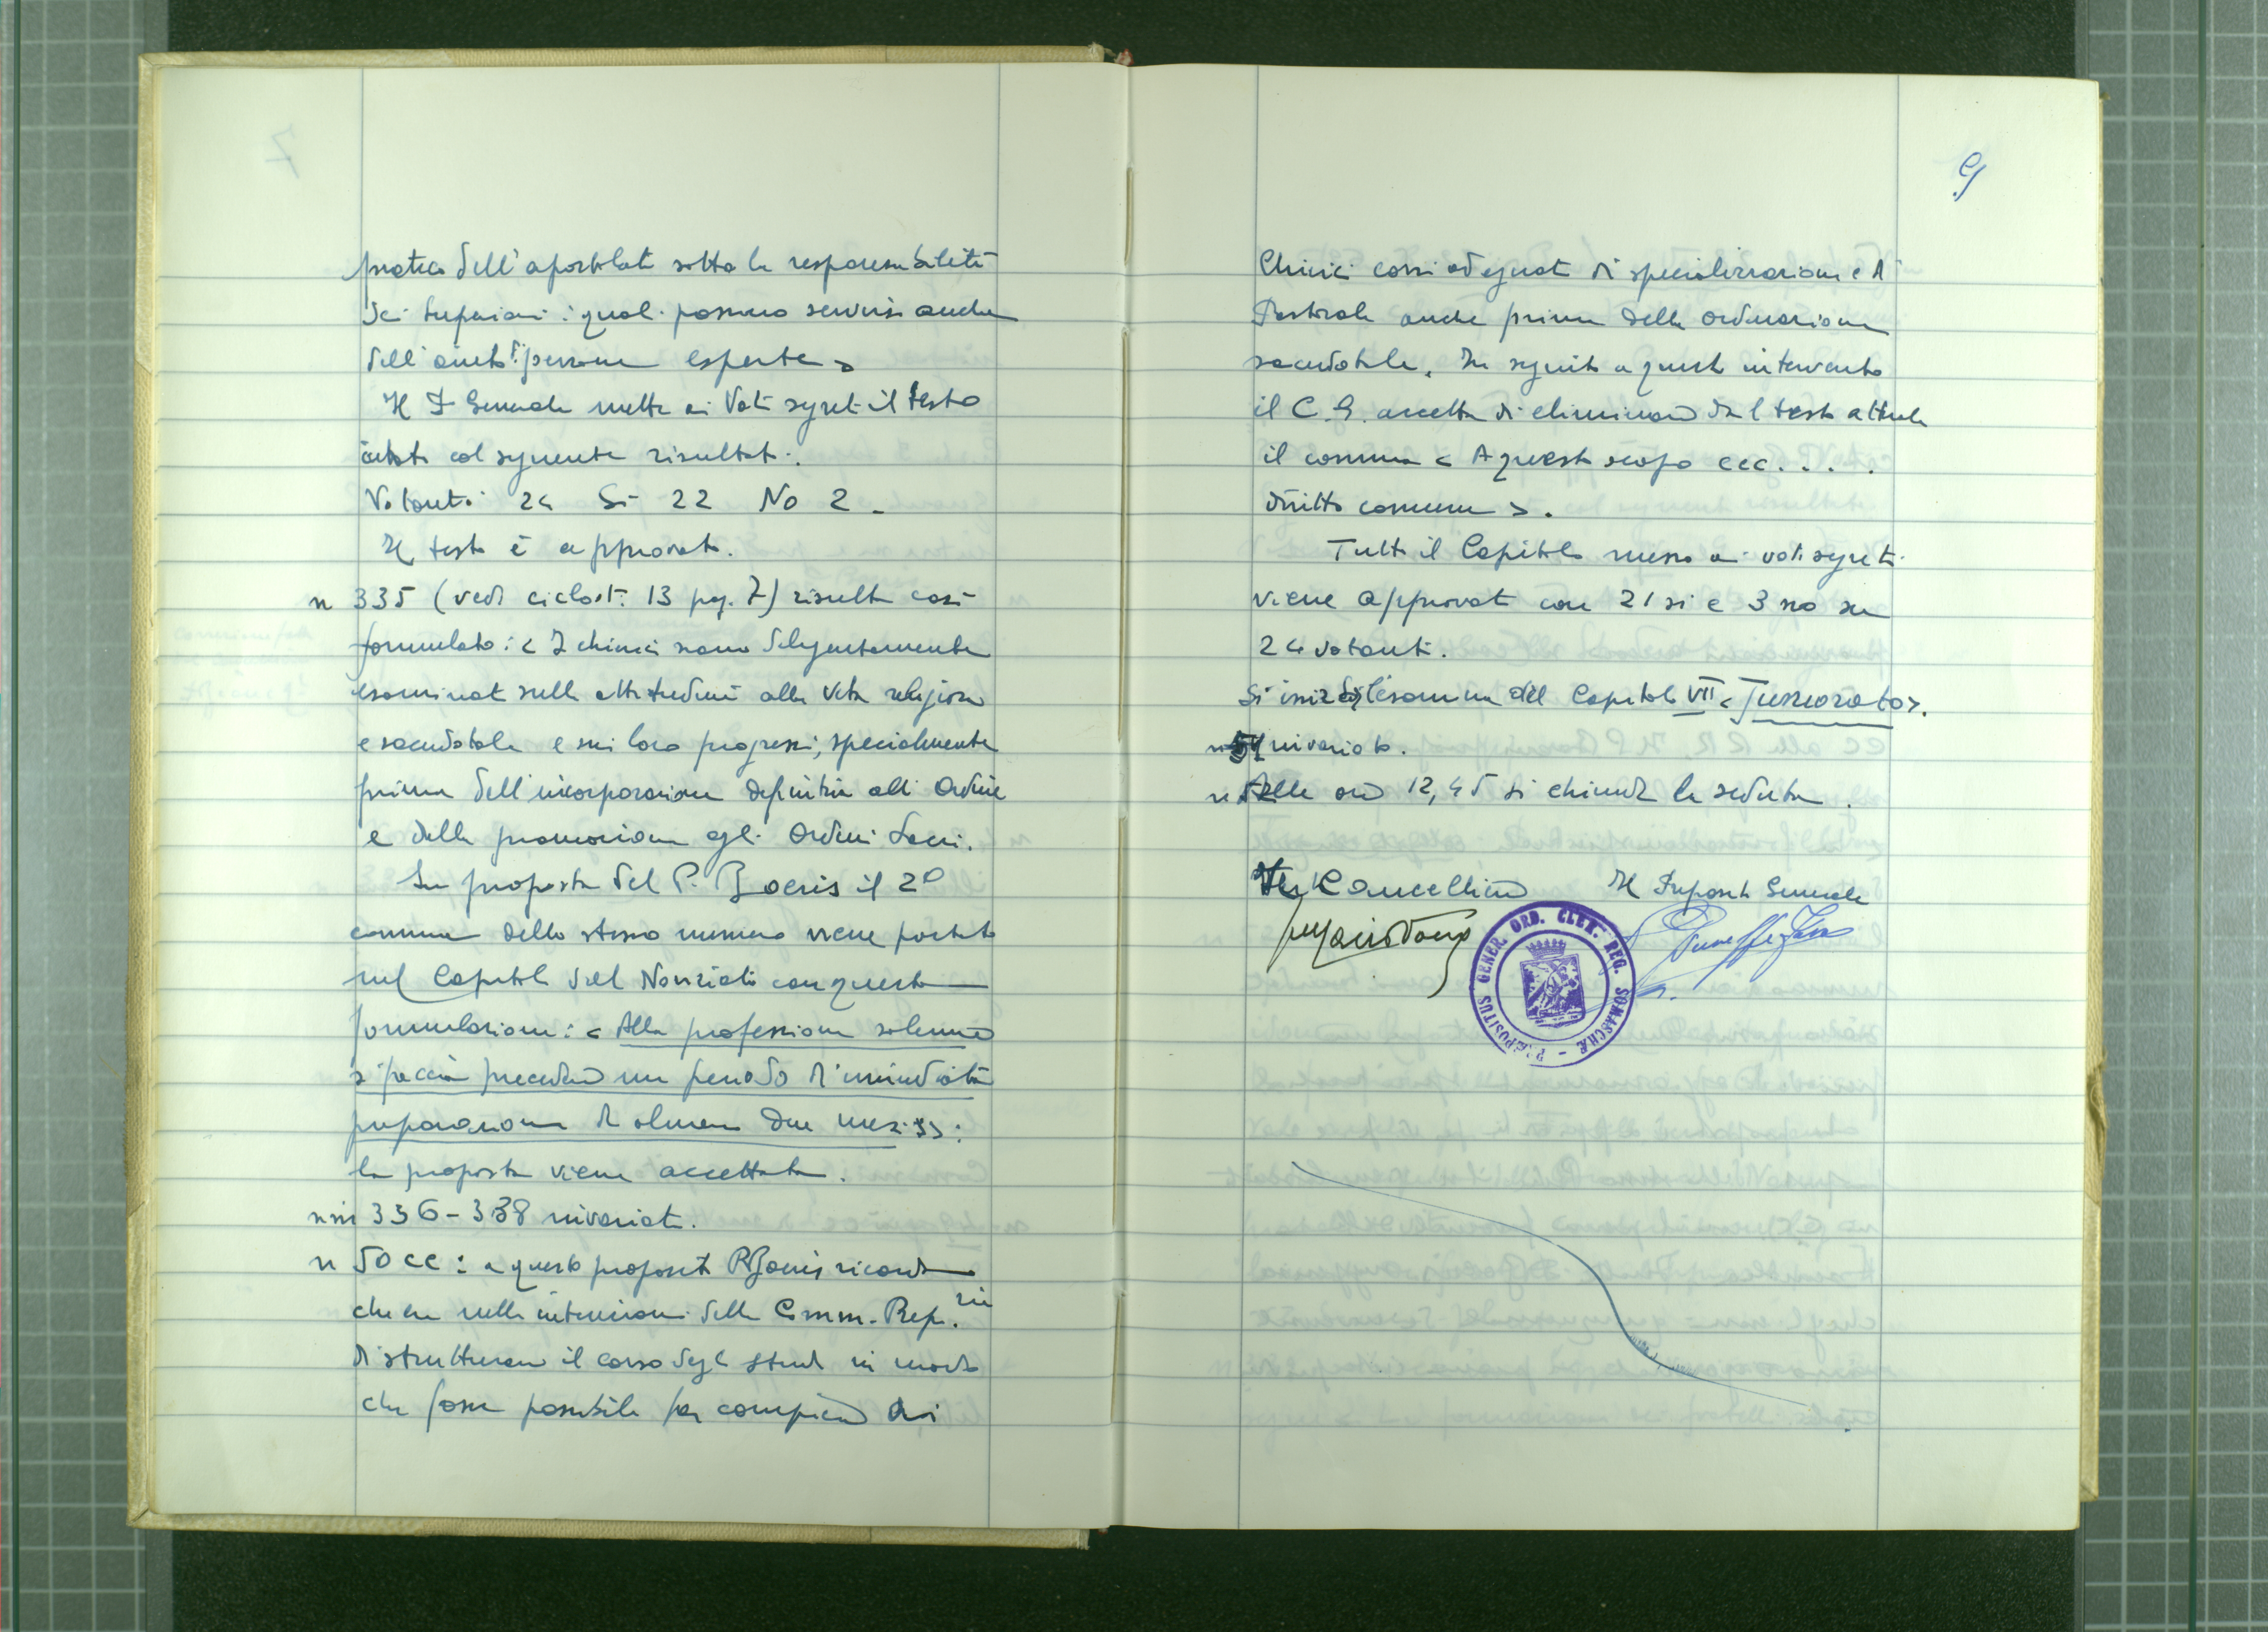 pratica dell'apostolato sotto la responsabilità
dei Superiori i quali possono servirsi anche
dell'aiuto di persone esperte >
Il P Generale mette ai Voti segreti il testo
citato col seguente risultato:
Votanti 24 Si 22 No 2.
Il testo è approvato.
n 335 (vedi ciclost. 13 pag. 7) risulta così
formulato: < I chierici siano diligentemente
esaminati sulle attitudini alla vita religiosa
e sacerdotale e sui loro progressi, specialmente
prima dell'incorporazione definitiva all'Ordine
e della promozione agli Ordini Sacri.
Su proposta del P. Boeris il 2º
comma dello stesso numero viene portato
nel Capitolo del Noviziato con questa
formulazione: < Alla professione solenne
si faccia precedere un periodo d'immediata
preparazione di almeno due mesi >>:
la proposta viene accettata.
nni 336-338 invariati.
n 50 cc: a questo proposito P. Boeris ricorda
che era nelle intenzioni della Comm. Prep.rie
di strutturare il corso degli studi in modo
che fosse possibile far compiere ai
9
Chierici corsi adeguati di specializzazione e di
Pastorale anche prima della ordinazione
sacerdotale. In seguito a questo intervento
il C.G. accetta di eliminare dal testo attuale
il comma < A questo scopo ecc. . . .
diritto comune >.
Tutto il Capitolo messo ai voti segreti
viene approvato con 21 si e 3 no su
24 votanti.
Si inizia l'esame del Capitolo VII < Juniorato >.
n 51 invariato.
Alle ore 12,45 si chiude la seduta.
Il Cancelliere Il Preposito Generale
PRAEPOSITUS GENER. ORD. CLER. REG. SOMASCHAE